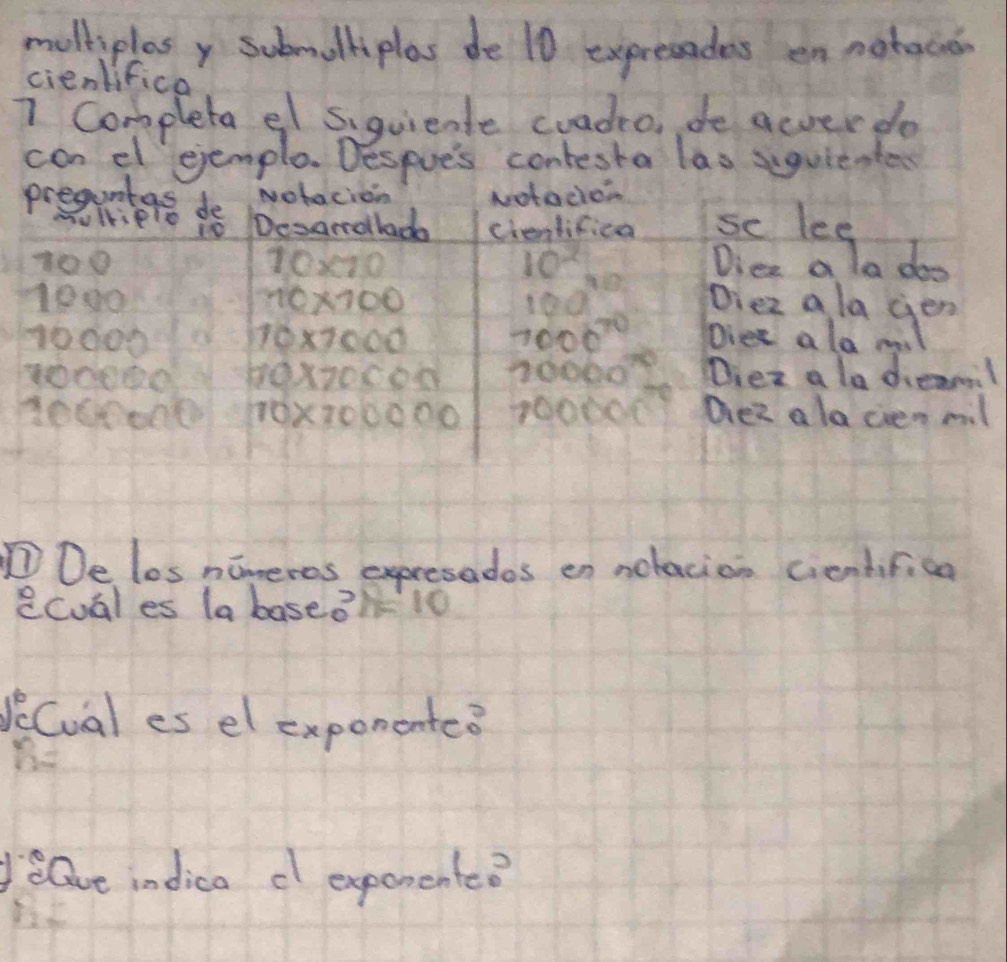 multiplos y submultiplos de 10 expresados en notación
cientifica
1 Completa el siguiente cuadro, de acuerdo
con el ejemplo. Después contesta las siguientes
preguntas
multiplo de 10 Notación Desarrollada Notación cientifica se lee
100 10x10 10² Diez a la dos
1000 10x100 100¹⁰ Diez a la cien
10000 10x1000 1000¹⁰ Diez a la mil
100000 10x10000 10000¹⁰ Diez a la diezmil
1000000 10x100000 100000¹⁰ Diez a la cien mil
① De los números expresados en notación cientifica
¿cuál es la base? R= 10
¿Cuál es el exponente?
R=
¿Que indica el exponente?
R=